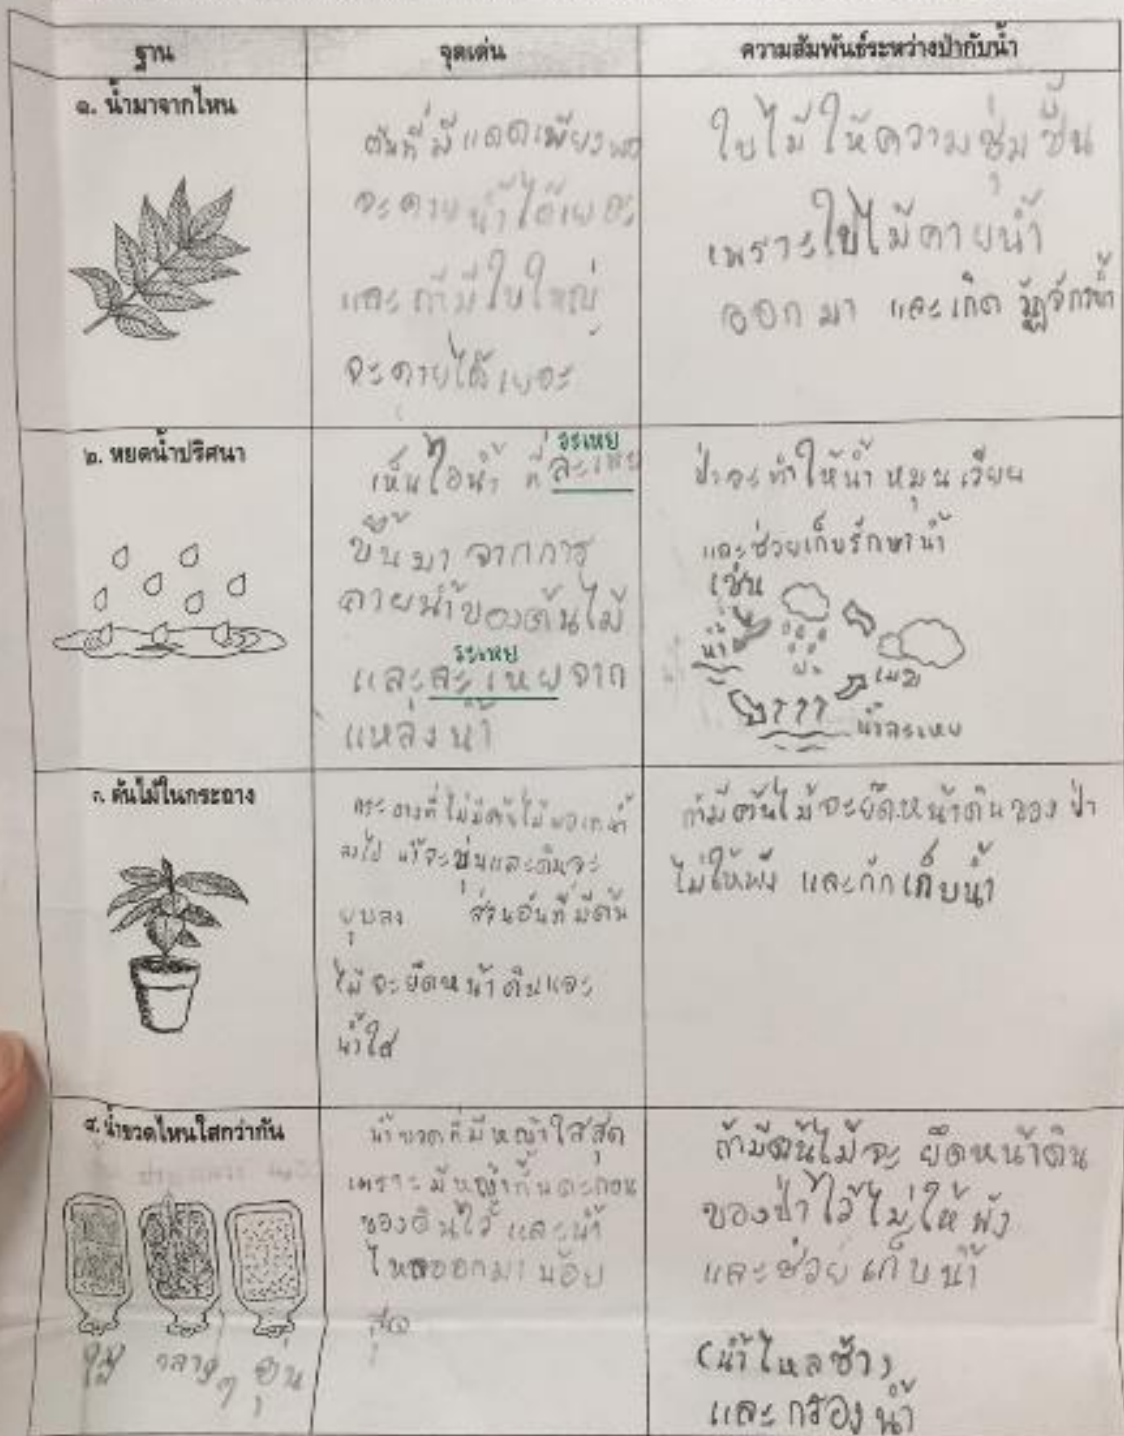 ฐาน
จุดเด่น
ความสัมพันธ์ระหว่างป่ากับน้ำ
๑. น้ำมาจากไหน
ต้นที่มีแดดเพียงพอ
จะคายน้ำได้เยอะ
และถ้ามีใบใหญ่
จะคายได้เยอะ
ใบไม้ให้ความชุ่มชื้น
เพราะใบไม้คายน้ำ
ออกมา และเกิด วัฏจักรน้ำ
๒. หยดน้ำปริศนา
ระเหย
เห็นไอน้ำ ที่ ละเหย
ขึ้นมา จากการ
คายน้ำของต้นไม้
ระเหย
และละเหยจาก
แหล่งน้ำ
ป่าจะทำให้น้ำ หมุนเวียน
และช่วยเก็บรักษาน้ำ
เช่น
น้ำ
ฝน
เมฆ
น้ำละเหย
๓. ต้นไม้ในกระถาง
กระถางที่ไม่มีต้นไม้พอเทน้ำ
ลงไป น้ำจะขุ่นและดินจะ
ยุบลง ส่วนอันที่มีต้น
ไม้จะยึดหน้าดินและ
น้ำใส
ถ้ามีต้นไม้จะยึดหน้าดินของ ป่า
ไม่ให้พัง และกักเก็บน้ำ
๔. น้ำขวดไหนใสกว่ากัน
ใส กลางๆ ขุ่น
น้ำขวดที่มีหญ้าใสสุด
เพราะมีหญ้ากั้นตะกอน
ของดินไว้ และน้ำ
ไหลออกมาน้อย
สุด
ถ้ามีต้นไม้จะ ยึดหน้าดิน
ของป่าไว้ไม่ให้พัง
และช่วยเก็บน้ำ
(น้ำไหลช้าๆ
และกรองน้ำ